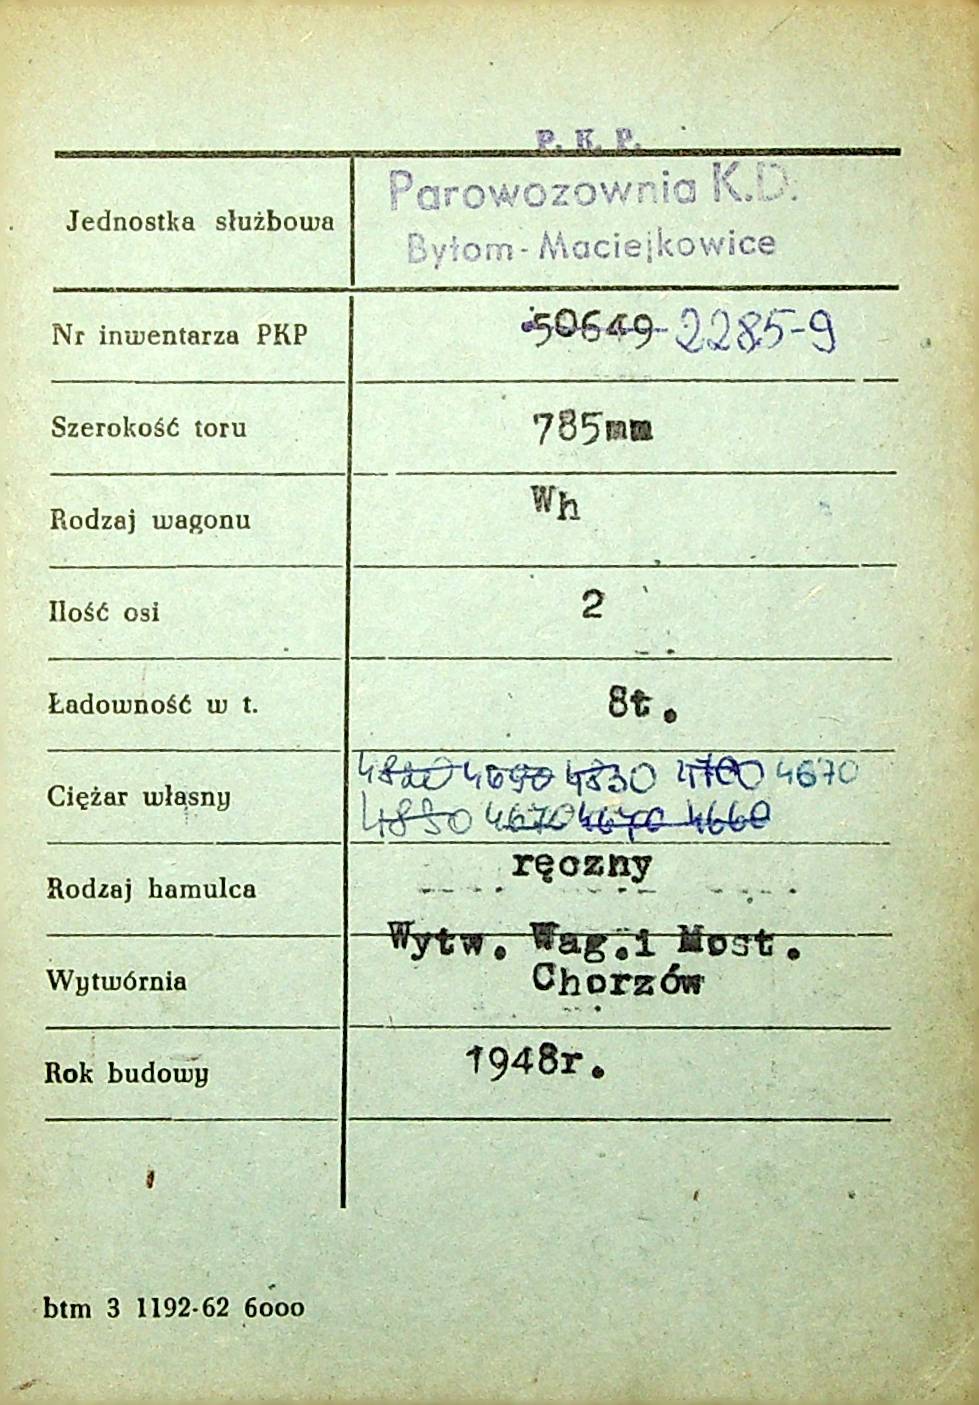 P. K. P.
Parowozownia K.D.
Jednostka służbowa
Bytom-Maciejkowice
Nr inwentarza PKP 50649 2285-9
Szerokość toru 785mm
Rodzaj wagonu Wh
Ilość osi 2
Ładowność w t. 8t.
4820 4690 4830 4700 4670
Ciężar własny
4850 4670 4670 4660
Rodzaj hamulca ręczny
Wytw. Wag.i Most.
Wytwórnia Chorzów
Rok budowy 1948r.
btm 3 1192-62 6000